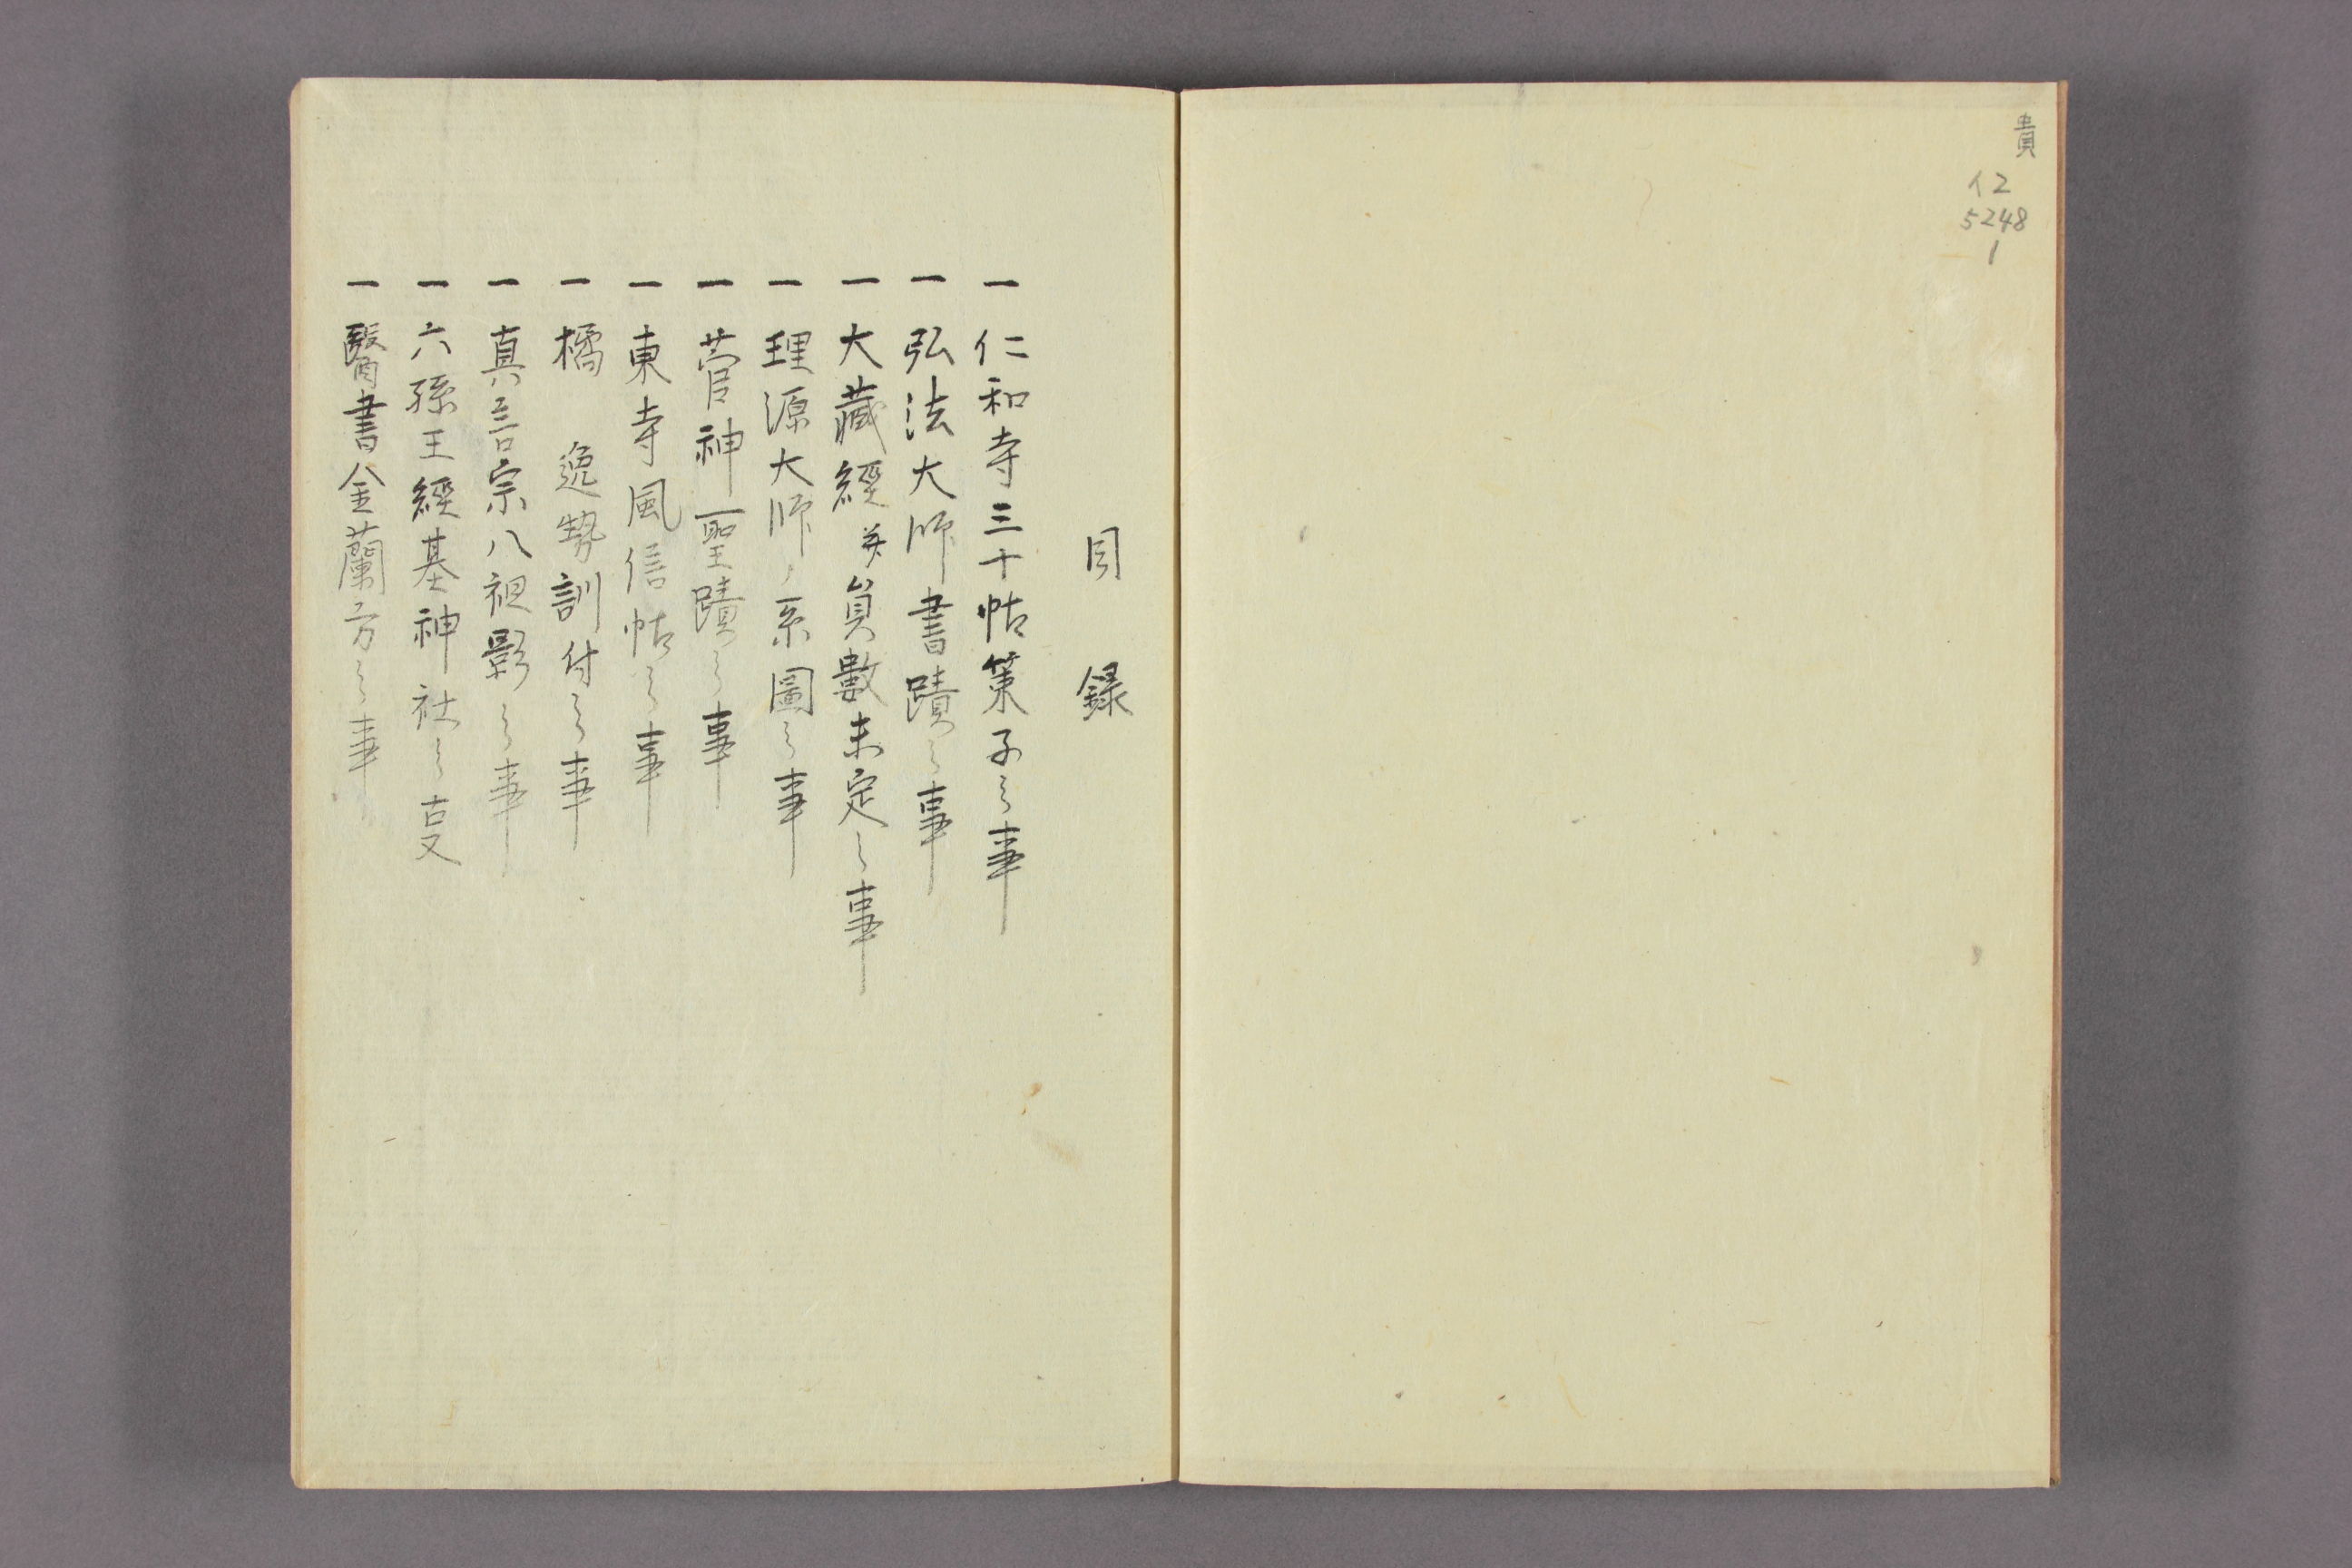 貴
イ2
5248
1
目録
一 仁和寺三十帖策子之事
一 弘法大師書蹟之事
一 大藏經并貟數未定之事
一 理源大師ノ系圖之事
一 菅神聖蹟之事
一 東寺風信帖之事
一 橘 逸勢訓付之事
一 真言宗八祖影之事
一 六孫王經基神社之叓
一 醫書金蘭方之事